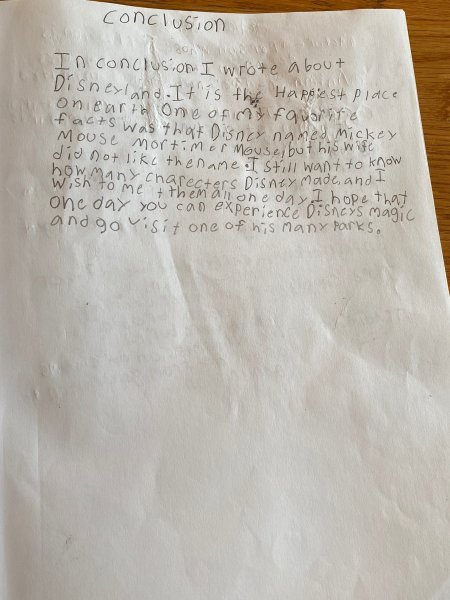 Conclusion
In conclusion I wrote about
Disneyland. It is the Happiest Place
on Earth. One of my favorite
facts was that Disney named Mickey
Mouse Mortimer Mouse, but his wife
did not like the name. I still want to know
how many charecters Disney made and I
wish to me t them all one day. I hope that
one day you can experience Disneys magic
and go visit one of his many Parks.